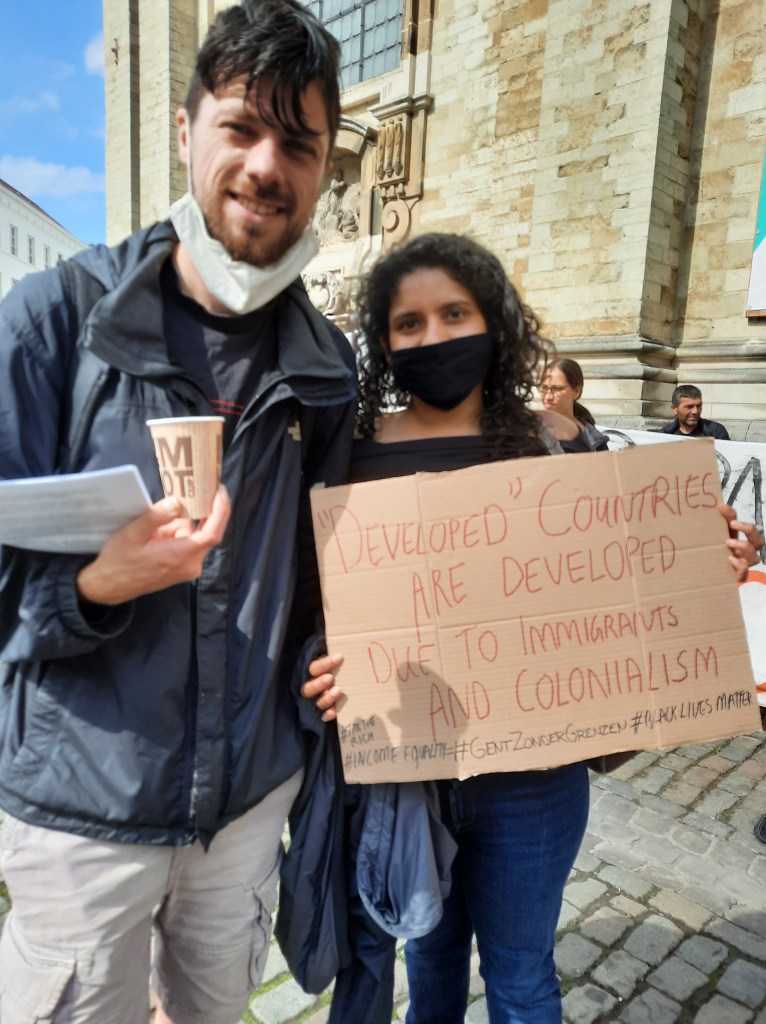 "DEVELOPED" COUNTRIES
ARE DEVELOPED
DUE TO IMMIGRANTS
AND COLONIALISM
#EAT THE
RICH
#INCOME EQUALITY #GENTZONDERGRENZEN #BLACKLIVESMATTER
M
OT